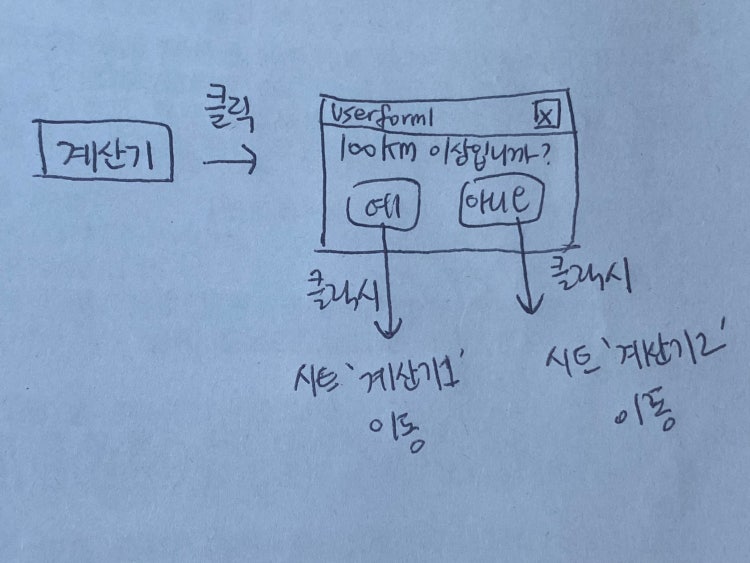 클릭
계산기
Userform1
X
100km 이상입니까?
예
아니오
클릭시
클릭시
시트 '계산기1'
이동
시트 '계산기2'
이동